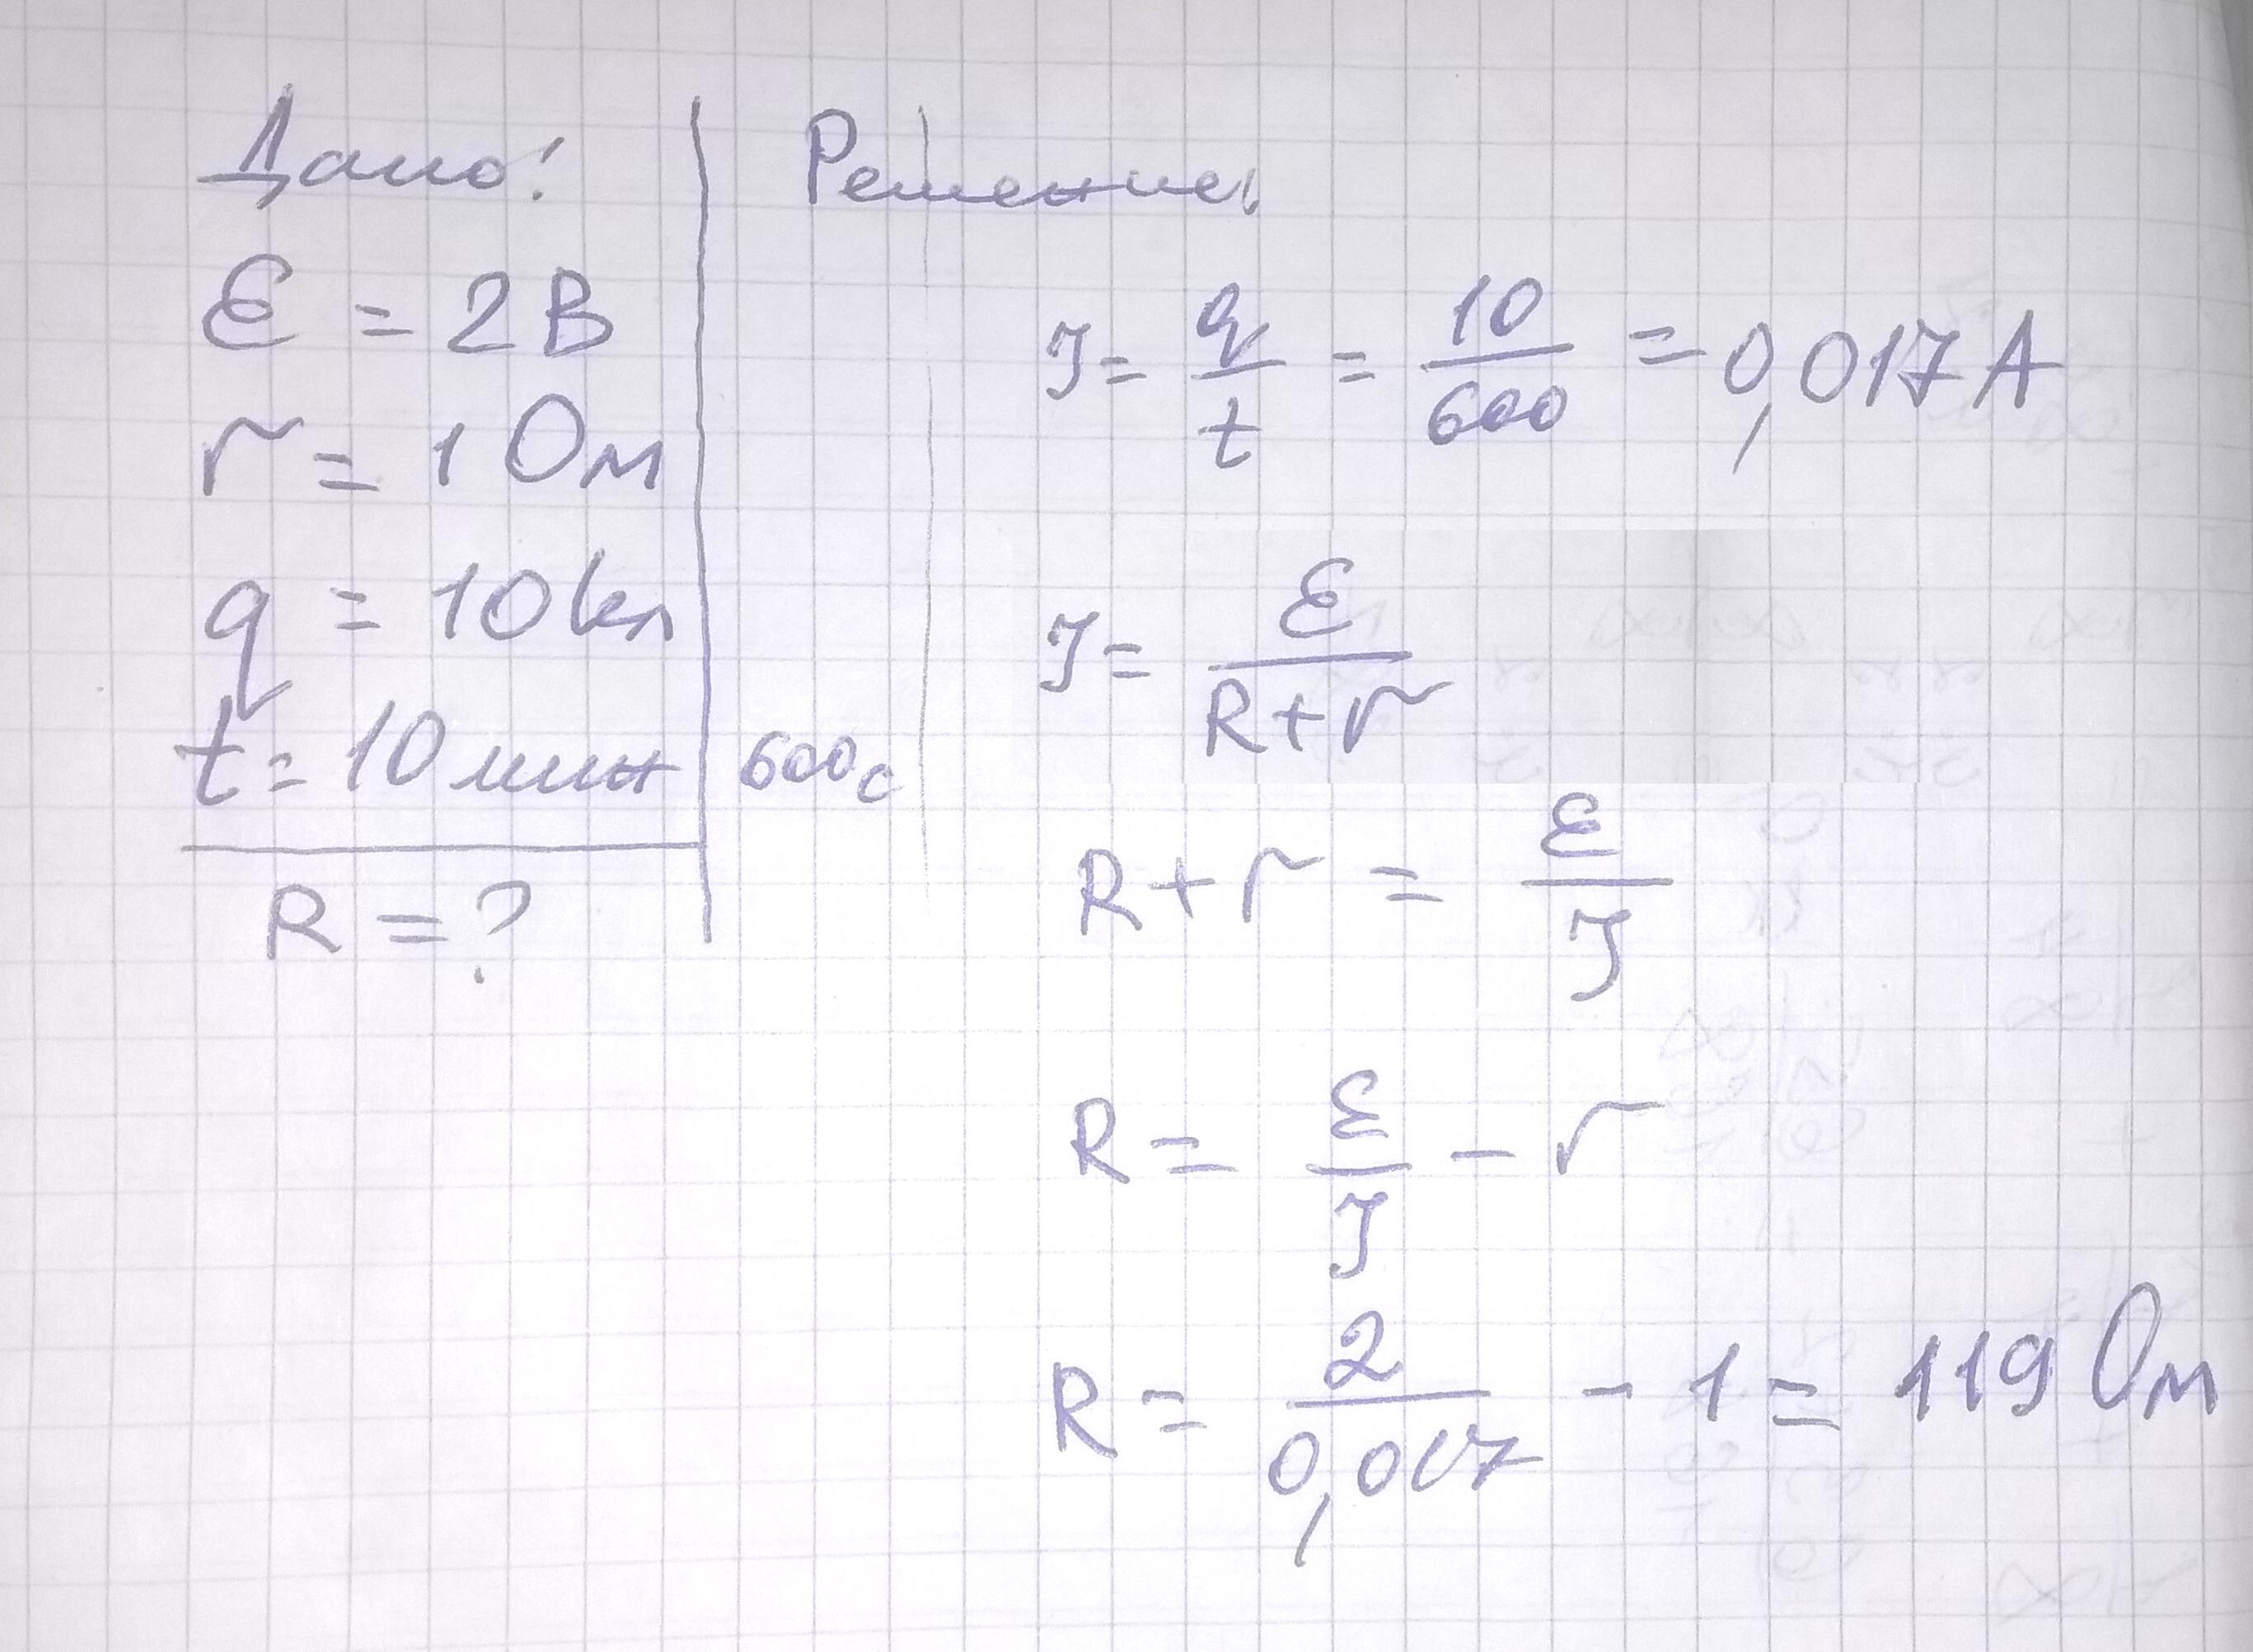 Дано:
ℰ = 2В
r = 1 Ом
q = 10 Кл
t = 10 мин
600 с
R = ?
Решение:
I = q/t = 10/600 = 0,017 А
I = ℰ/(R+r)
R + r = ℰ/I
R = ℰ/I - r
R = 2/0,017 - 1 = 119 Ом